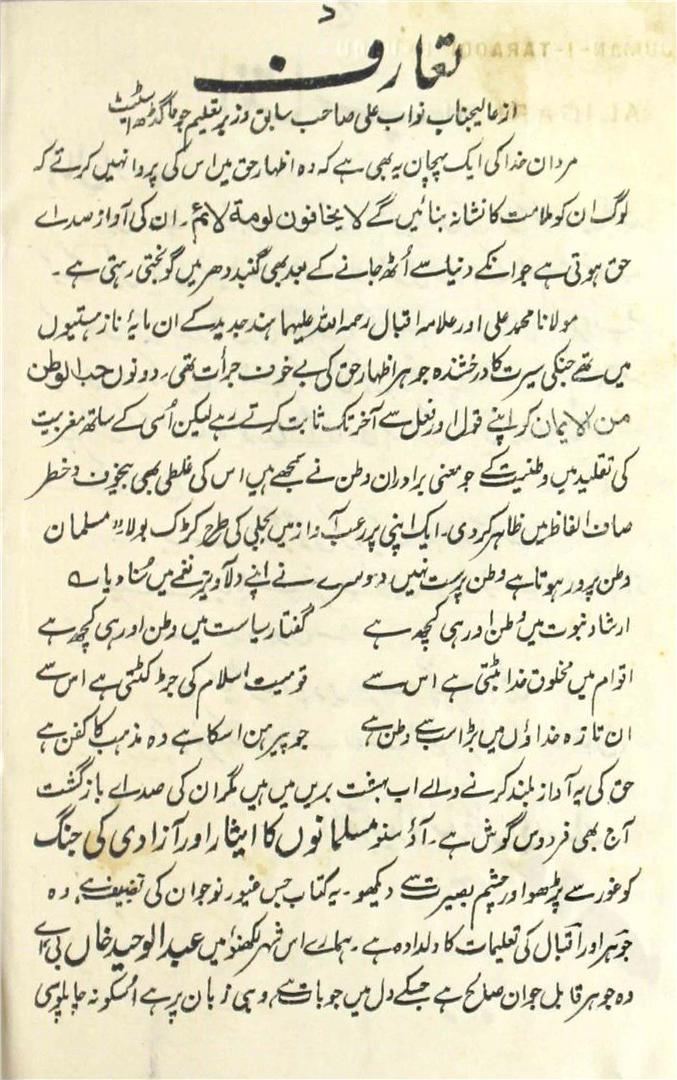 د
تعارف
از عالیجناب نواب علی صاحب سابق وزیر تعلیم جوناگڈھ اسٹیٹ
مردان خدا کی ایک پہچان یہ بھی ہے کہ وہ اظہار حق میں اس کی پروا نہیں کرتے کہ
لوگ ان کو ملامت کا نشانہ بنائیں گے لا یخافون لومۃ لائم۔ ان کی آواز صدائے
حق ہوتی ہے جو انکے دنیا سے اُٹھ جانے کے بعد بھی گنبد دھر میں گونجتی رہتی ہے۔
مولانا محمد علی اور علامہ اقبال رحمہ اللہ علیہما ہند جدید کے ان مایۂ ناز ہستیوں
میں تھے جنکی سیرت کا درخشندہ جوہر اظہار حق کی بے خوف جرأت تھی۔ دونوں حب الوطن
من الایمان کو اپنے قول اور فعل سے آخر تک ثابت کرتے رہے لیکن اُسی کے ساتھ مغربیت
کی تقلید میں وطنیت کے جو معنی برادران وطن نے سمجھے ہیں اس کی غلطی بھی بیخوف و خطر
صاف الفاظ میں ظاہر کردی۔ ایک اپنی پر رعب آواز میں بجلی کی طرح کڑک بولا "مسلمان
وطن پرور ہوتا ہے وطن پرست نہیں دوسرے نے اپنے دلآویز نغمے میں سُنا دیا ؎
ارشاد نبوت میں وطن اور ہی کچھ ہے گفتار سیاست میں وطن اور ہی کچھ ہے
اقوام میں مخلوق خدا بٹتی ہے اس سے قومیت اسلام کی جڑ کٹتی ہے اس سے
ان تازہ خداؤں میں بڑا سب سے وطن ہے جو پیرہن اسکا ہے وہ مذہب کا کفن ہے
حق کی یہ آواز بلند کرنے والے اب بہشت بریں میں ہیں مگر ان کی صدائے بازگشت
آج بھی فردوس گوش ہے۔ آؤ سنو مسلمانوں کا ایثار اور آزادی کی جنگ
کو غور سے پڑھو اور چشم بصیرت سے دیکھو۔ یہ کتاب جس غیور نوجوان کی تصنیف ہے، وہ
جوہر اور اقبال کی تعلیمات کا دلدادہ ہے۔ ہمارے اس شہر لکھنؤ میں عبدالوحید خاں بی اے
وہ جوہر قابل جوان صالح ہے جسکے دل میں جو بات ہے وہی زبان پر ہے اُسکو نہ چاپلوسی